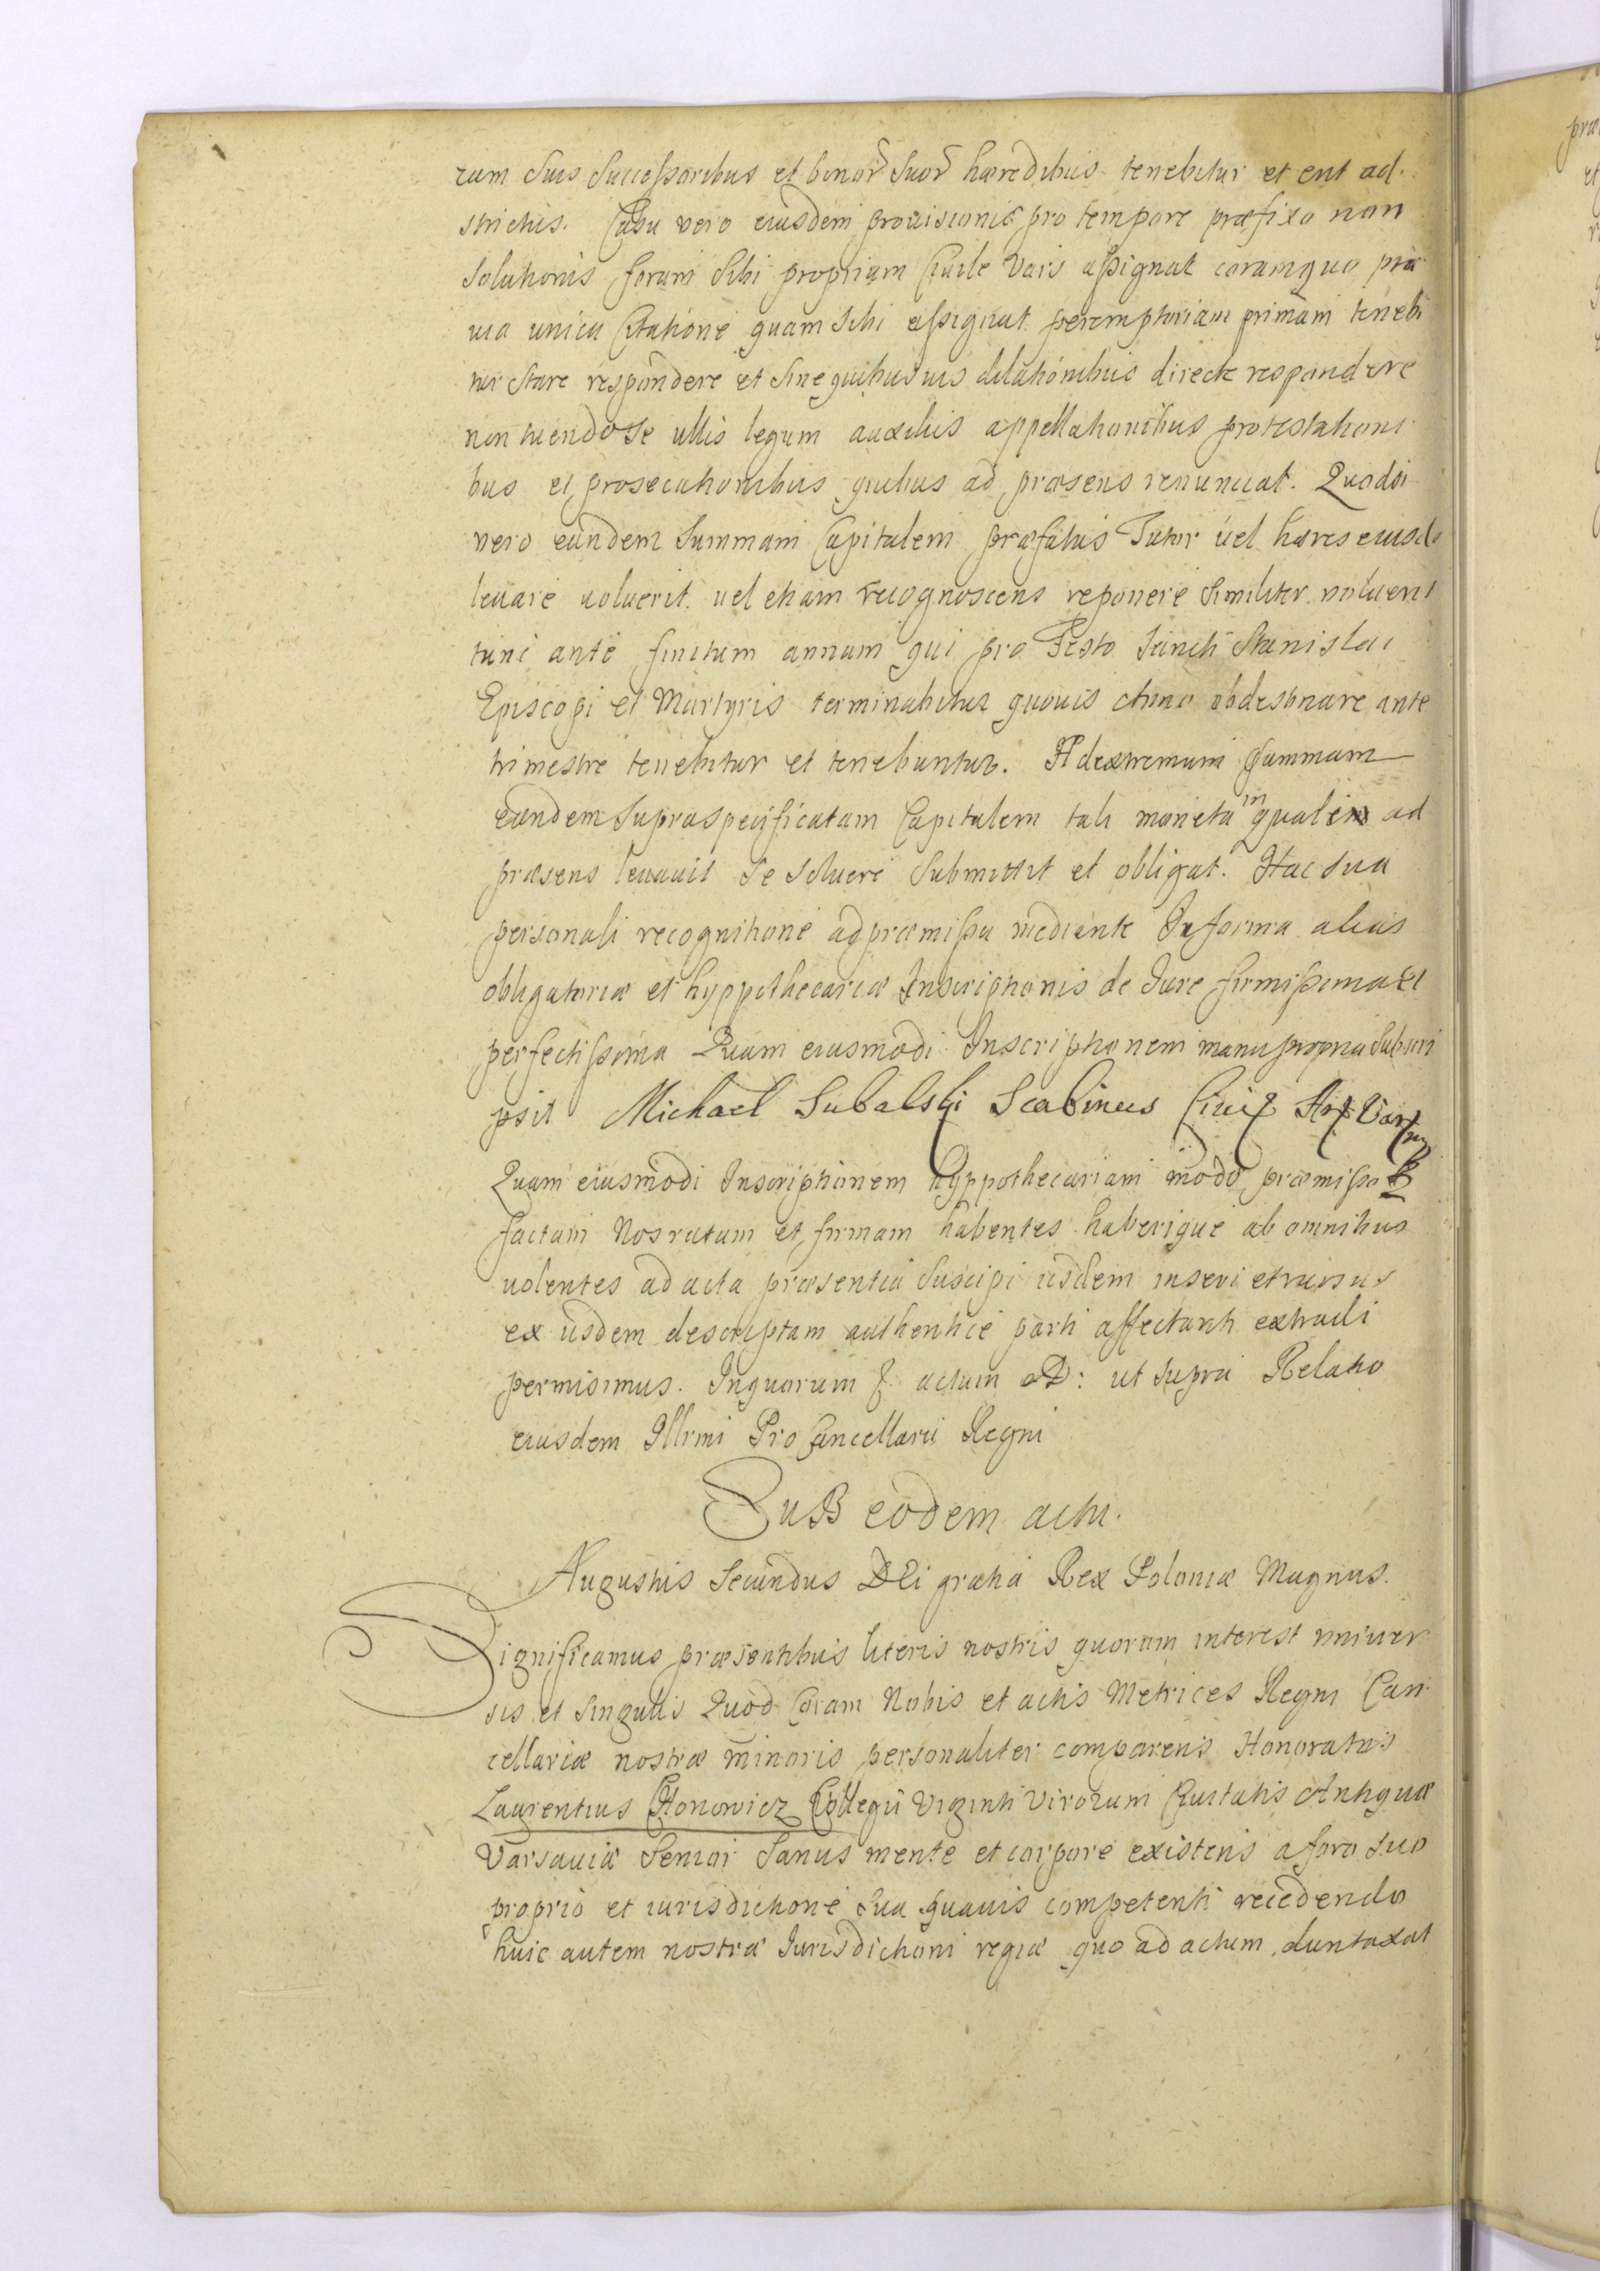 rum Suis Successoribus et bonor Suor hæredibus tenebitur et erit ad-
strictus. Casu vero eiusdem provisionis pro tempore præfixo non
Solutionis forum Sibi proprium Ciuile Vars assignat coramquo præ
uia unica Citatione quam Sibi assignat peremptoriam primam tenebi
tur Stare respondere et Sine quibusuis dilationibus directe respondere
non tuendo Se ullis legum auxiliis appellationibus protestationi
bus et prosecutionibus quibus ad præsens renunciat. Quodsi
vero eandem Summam Capitalem præfatus Tutor uel hæres eiusd
leuare uoluerit. uel etiam recognoscens reponere Similiter voluerit
tunc ante finitum annum qui pro Festo Sancti Stanislai
Episcopi et Martyris terminabitur quouis Anno obdestinare ante
trimestre tenebitur et tenebuntur. Ad extremum Summam
eandem Supraspecificatam Capitalem tali moneta in quali ad
præsens leuauit Se Soluere Submittit et obligat. Hac Sua
personali recognitione ad præmissa mediante In forma alias
obligatoriæ et hyppothecariæ Inscriptionis de Jure firmissima et
perfectissima Quam eiusmodi Inscriptionem manu propria Subscri
psit Michael Subalski Scabinus Ciuit Ant Vars mp
Quam eiusmodi Inscriptionem hyppothecariam modo præmisso
factam Nos ratam et firmam habentes haberique ab omnibus
uolentes ad acta præsentia Suscipi iisdem inseri et rursus
ex iisdem descriptam authentice parti affectanti extradi
permisimus. In quorum actum D: ut Supra Relatio
eiusdem Illrmi Pro Cancellarii Regni
SuB eodem actu.
Augustus Secundus DEi gratia Rex Poloniæ Magnus.
Significamus præsentibus literis nostris quorum interest vniuer
sis et Singulis Quod Coram Nobis et actis Metrices Regni Can
cellariæ nostræ minoris personaliter comparens Honoratus
Laurentius Collegii Viginti Virorum Ciuitatis Antiquæ
Varsauiæ Senior Sanus mente et corpore existens a foro Suo
proprio et iurisdictione Sua quauis competenti recedendo
huic autem nostræ Jurisdictioni regiæ quo ad actum duntaxat
præ
et